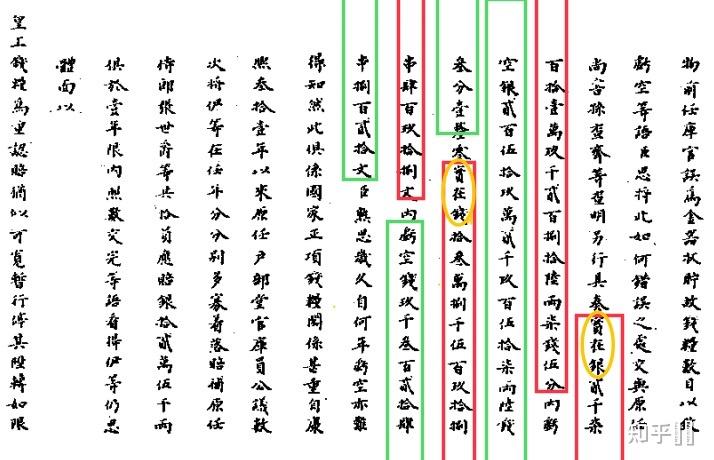 物前任庫官誤為金器收貯故錢糧數目以致
虧空等語臣思將此如何錯誤之處交與原任
尚書孫查齊等查明另行具奏實在銀貳千柒
百拾壹萬玖千貳百捌拾陸兩柒錢伍分內虧
空銀貳百伍拾玖萬貳千玖百伍拾柒兩陸錢
叁分壹釐零實在錢拾叁萬捌千伍百玖拾捌
串肆百玖拾捌文內虧空錢玖千叁百貳拾肆
串捌百貳拾文臣熟思歲久自何年虧空亦難
得知然此俱係國家正項錢糧關係甚重自康
熙叁拾壹年以來原任戶部堂官庫員公議數
次將伊等在任年分分別多寡著落賠補原任
侍郎張世爵等共拾員應賠銀拾貳萬伍千兩
俱於壹年限內照數交完等語看得伊等仍思
體面以
皇工錢糧為重認賠倘似可寬暫行將其陸轉如限
知乎